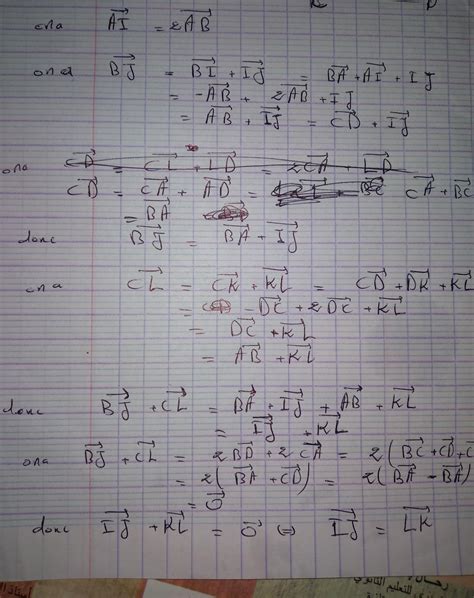 ona $\vec{AI} = 2\vec{AB}$
ona $\vec{BJ} = \vec{BI} + \vec{IJ} = \vec{BA} + \vec{AI} + IJ$
$= -\vec{AB} + 2\vec{AB} + IJ$
$= \vec{AB} + \vec{IJ} = \vec{CD} + \vec{IJ}$
ona $\vec{CD} = \vec{CL} + \vec{LD} = 2\vec{CA} + \vec{LD}$
$\vec{CD} = \vec{CA} + \vec{AD} =$ $\vec{CA} + \vec{BC}$
$= \vec{BA}$
donc $\vec{BJ} = \vec{BA} + \vec{IJ}$
ona $\vec{CL} = \vec{CK} + \vec{KL} = \vec{CD} + \vec{DK} + \vec{KL}$
$= -\vec{DC} + 2\vec{DC} + \vec{KL}$
$= \vec{DC} + \vec{KL}$
$= \vec{AB} + \vec{KL}$
donc $\vec{BJ} + \vec{CL} = \vec{BA} + \vec{IJ} + \vec{AB} + \vec{KL}$
$= \vec{IJ} + \vec{KL}$
ona $\vec{BJ} + \vec{CL} = 2\vec{BD} + 2\vec{CA} = 2(\vec{BC} + \vec{CD} +$
$= 2(\vec{BA} + \vec{CD}) = 2(\vec{BA} - \vec{BA})$
$= \vec{0}$
donc $\vec{IJ} + \vec{KL} = \vec{0} \Leftrightarrow \vec{IJ} = \vec{LK}$